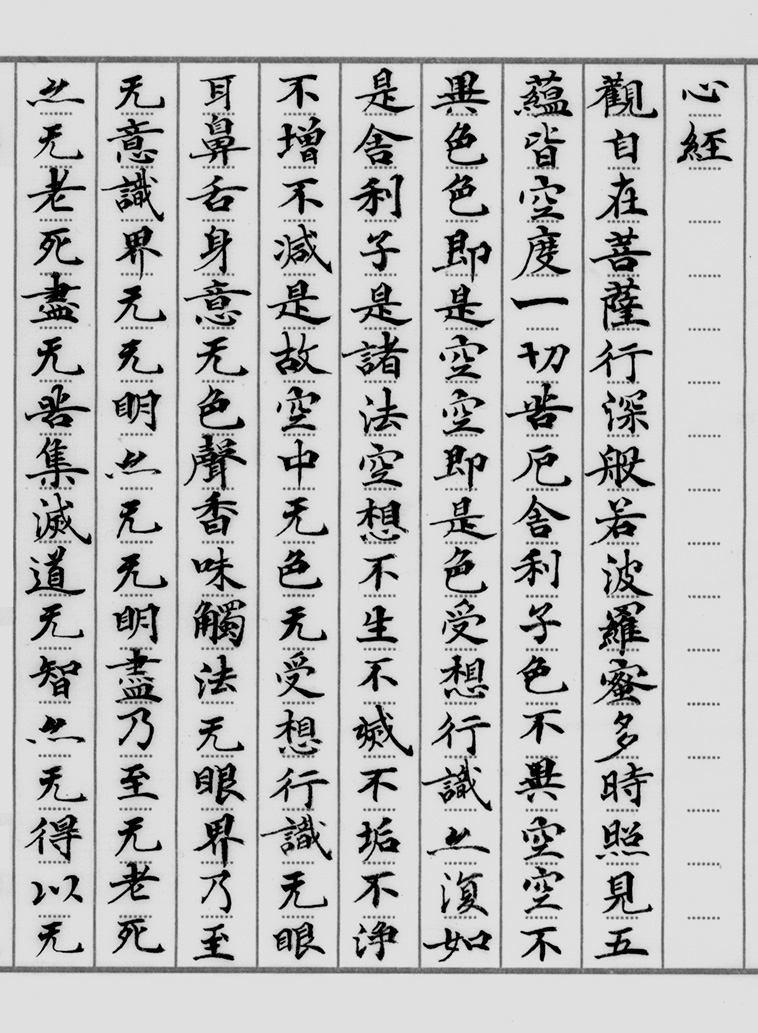 心經
觀自在菩薩行深般若波羅蜜多時照見五
蘊皆空度一切苦厄舍利子色不異空空不
異色色即是空空即是色受想行識亦復如
是舍利子是諸法空想不生不滅不垢不淨
不增不減是故空中无色无受想行識无眼
耳鼻舌身意无色聲香味觸法无眼界乃至
无意識界无无明亦无无明盡乃至无老死
亦无老死盡无苦集滅道无智亦无得以无